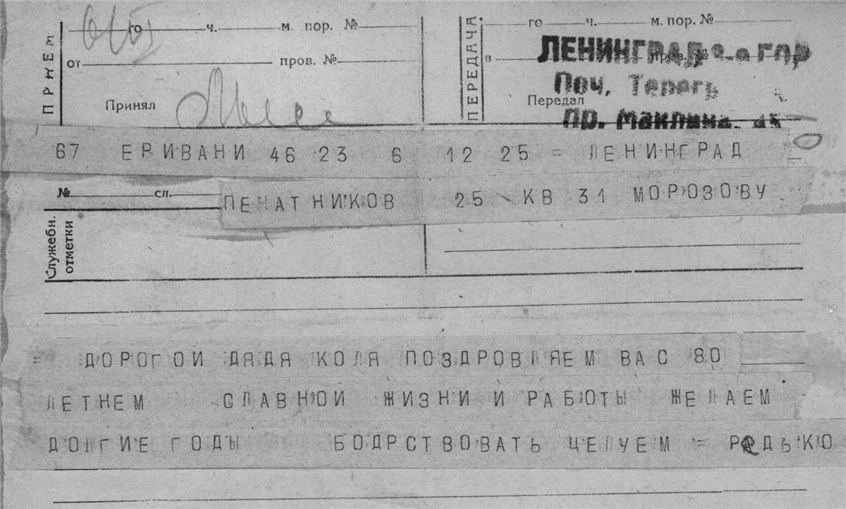 го ч. м. пор. №
го ч. м. пор. №
ПРИЕМ
от пров. №
Принял
ПЕРЕДАЧА
в
Передал
ЛЕНИНГРАД
Поч.
пр. Маклина
67 ЕРИВАНИ 46 23 6 12 25 = ЛЕНИНГРАД
№ сл.
ПЕЧАТНИКОВ 25 КВ 31 МОРОЗОВУ
Служебн. отметки
= ДОРОГОИ ДЯДЯ КОЛЯ ПОЗДРОВЛЯЕМ ВАС 80
ЛЕТНЕМ СЛАВНОИ ЖИЗНИ И РАБОТЫ ЖЕЛАЕМ
ДОЛГИЕ ГОДЫ БОДРСТВОВАТЬ ЦЕЛУЕМ = РЕДЬКО